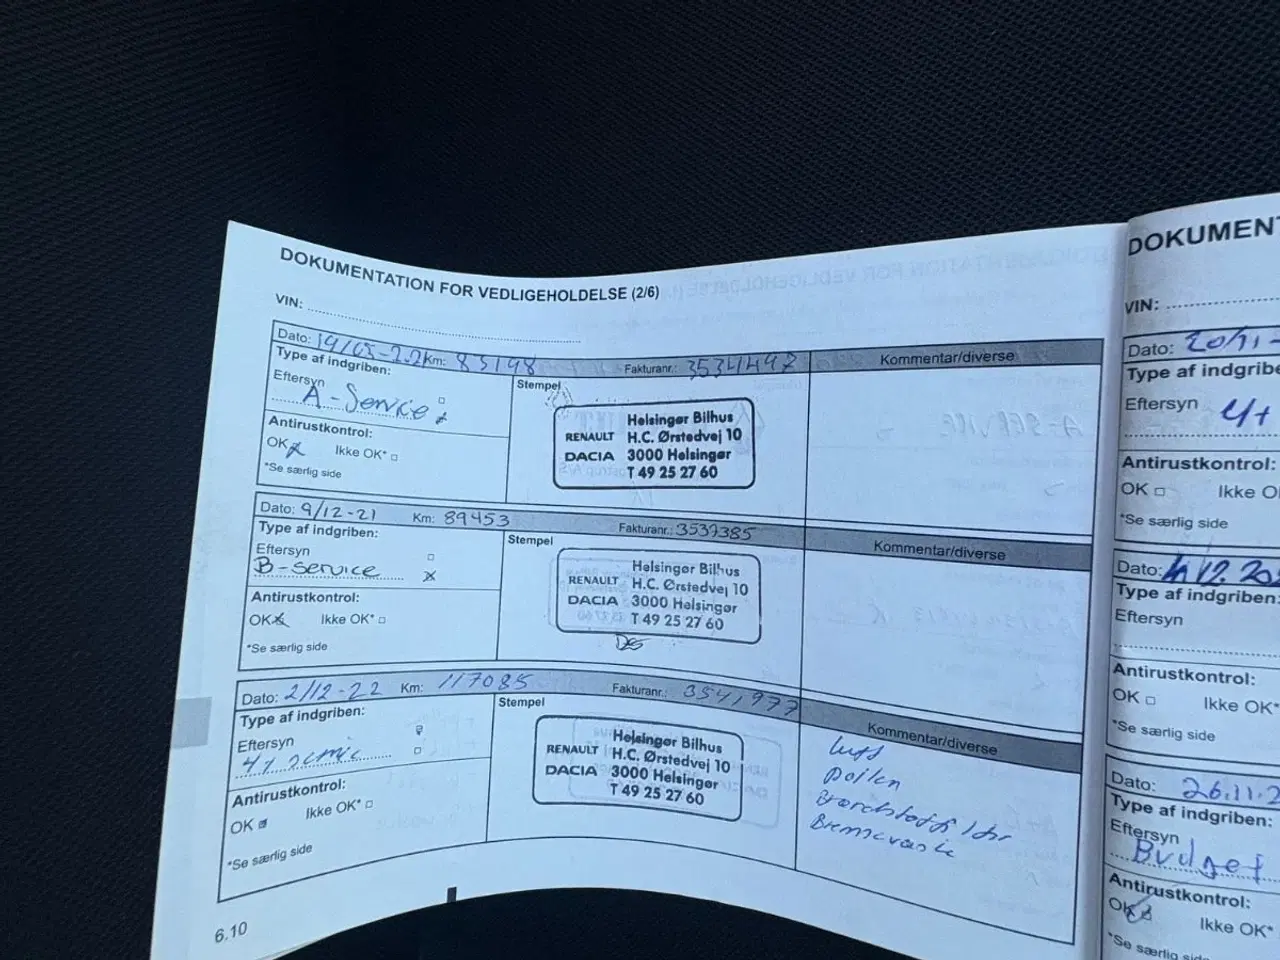 DOKUMENTATION FOR VEDLIGEHOLDELSE (2/6)
VIN:
Dato: 19/05-22 Km: 83198 Fakturanr.: 3534497 Kommentar/diverse
Type af indgriben:
Eftersyn
A-Service
Antirustkontrol:
OK Ikke OK*
*Se særlig side
Stempel
Helsingør Bilhus
RENAULT H.C. Ørstedvej 10
DACIA 3000 Helsingør
T 49 25 27 60
Dato: 9/12-21 Km: 89453 Fakturanr.: 3537385 Kommentar/diverse
Type af indgriben:
Eftersyn
B-service
Antirustkontrol:
OK Ikke OK*
*Se særlig side
Stempel
Helsingør Bilhus
RENAULT H.C. Ørstedvej 10
DACIA 3000 Helsingør
T 49 25 27 60
Dato: 2/12-22 Km: 117085 Fakturanr.: 3541977 Kommentar/diverse
Type af indgriben:
Eftersyn
Antirustkontrol:
OK Ikke OK*
*Se særlig side
Stempel
Helsingør Bilhus
RENAULT H.C. Ørstedvej 10
DACIA 3000 Helsingør
T 49 25 27 60
Luft
Pollen
Bremsevæske
6.10
DOKUMEN
VIN:
Dato: 20/11-
Type af indgribe
Eftersyn
Antirustkontrol:
OK Ikke O
*Se særlig side
Dato:
Type af indgriben:
Eftersyn
Antirustkontrol:
OK Ikke OK*
*Se særlig side
Dato: 26.11.2
Type af indgriben:
Eftersyn
Budget
Antirustkontrol:
OK Ikke OK*
*Se særlig side